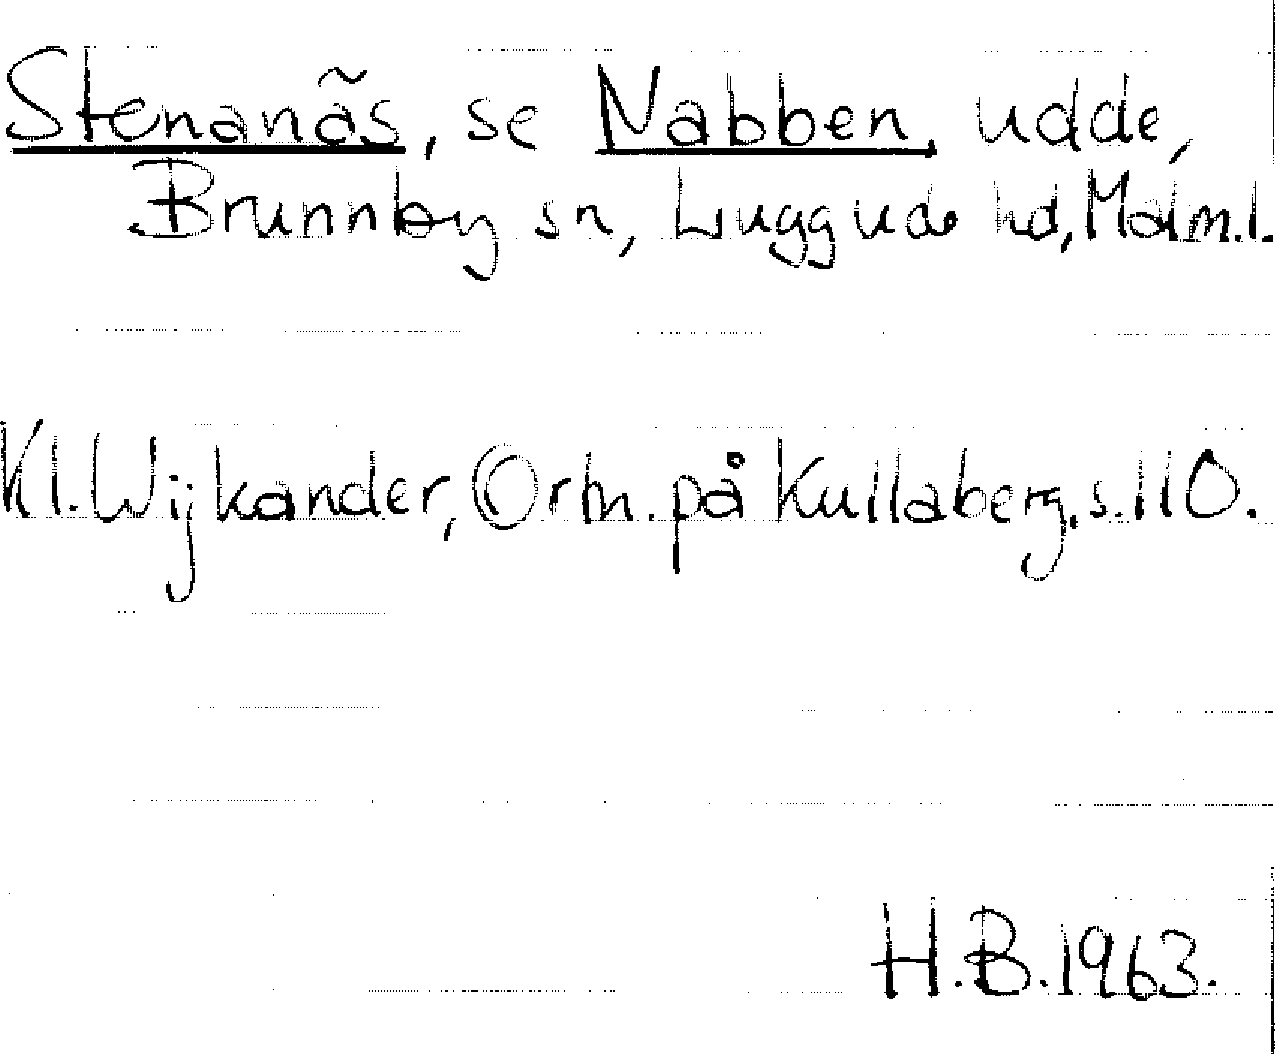 Stenanäs, se Nabben, udde,
Brunnby sn, Luggude hd, Malm.l.
Kl. Wijkander, Orm. på Kullaberg, s. 110.
H.B. 1963.